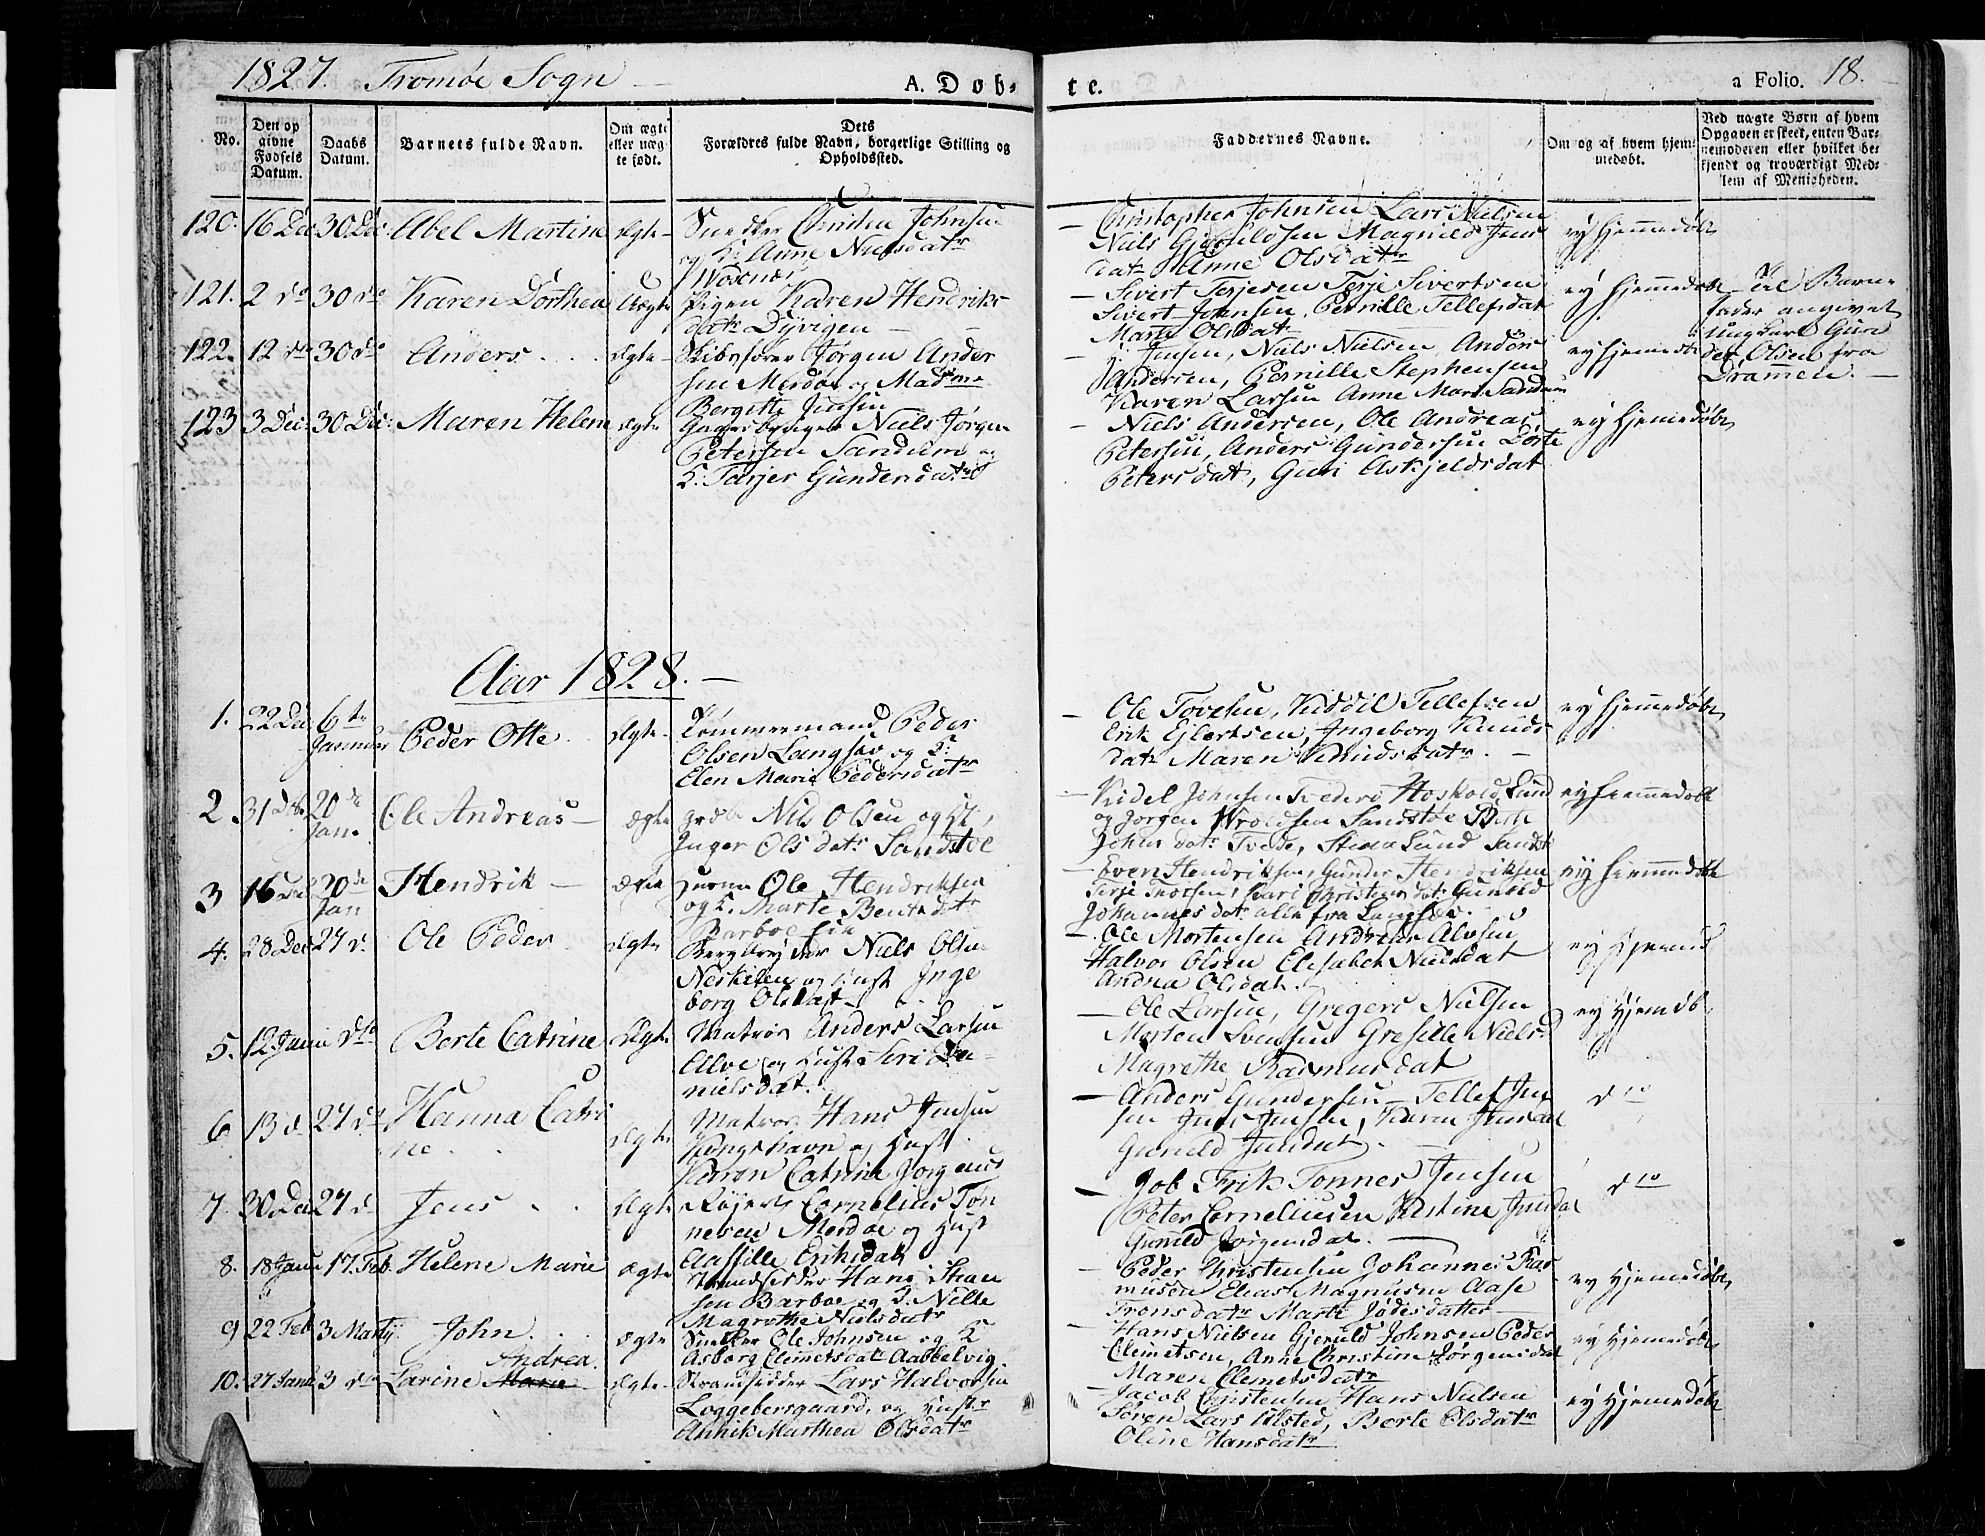 1827. Tromøe Sogn
A. Døb-
te.
a Folio. 18.
No.
Den op
givne
Fødsels
Datum.
Daabs
Datum.
Barnets fulde Navn.
Om ægte
eller uæg-
te født.
Dets
Forældres fulde Navn, borgerlige Stilling og
Opholdssted.
Faddernes Navne.
Om og af hvem hjem-
medøbt.
Ved uægte Børn af hvem
Opgaven er skeet, enten Bar-
nemoderen eller hvilket be-
kjendt og troværdigt Med-
lem af Menigheden.
120. 16 Dec 30 Dec Abel Martine Ægte
Snedker Christen Johnsen
og K: Anne Nielsdatr
Christopher Johnsen Lars Nielsen
Niels Magnild Jens
dat Anne Olsdatr
ey Hjemmedøbt
121. 2 do 30 do Karen Dorthea Uægte
Pigen Karen Hendriks-
datr Dyvigen
Sivert Terjesen Terje Sivertsen
Sivert Johnsen, Pernille Tellefsdat
Marte Olsdat
ey hjemmedøbt
Til Barne-
fader angivet
ungkarl Gun
der Olsen fra
Drammen.
122. 12 do 30 do Anders Ægte
Skibsfører Jørgen Ander
sen Merdøe og Madme
Bergitte Jensen
Jensen, Niels Nielsen Anders
Andersen, Pernille Stephensen
Karen Larsen Anne Marie Sandum
ey hjemedøbt
123 3 Dec: 30 Dec: Maren Helene Ægte
Niels Jørgen
Petersen Sandum og
K: Tarjer Gundersdatr
Niels Andersen, Ole Andreas
Petersen, Anders Gundersen Dorte
Petersdat, Guri Askjeldsdat
ey Hjemedøbt
Aar 1828.
1. 22 Dec 6te
Januar Peder Otte Ægte
Tømmermand Peder
Olsen Langsæv og K:
Elen Marie Pedersdatr
Ole Tovesen, Kiddil Tellefsen
Erik Gjertsen, Ingeborg Knuds
datr Maren Knudsdatr
ey hjemmedøbt
2 31 Dec 20de
Jan. Ole Andreas ægte
Nils Olsen og K,
Inger Olsdatr Sandstøe
Kidel Johnsen Tvedere Hoskold Lund
og Jørgen Sandstøe
Johns datr Tvede, Lund
ey hiemmedøbt
3 16 Dec 20de
Jan Hendrik ægte
Ole Hendriksen
og K. Marte Bentsdatr
Barboe
Even Hendriksen, Gunder Hendriksen
Terje Karl Christensdatr Gunild
Johannesdatr alle fra Langsæv
ey hiemmedøbt
4. 28 Dec 27 d. Ole Peder Ægte
Niels Olsen
Neskilen og Hust Inge
borg Olsdat
Ole Mortensen Andreas Alvsen
Halvor Olsen Elisabet Nielsdat
Andrea Olsdat.
5. 12 Janu dto Berte Catrine Ægte
Matros Anders Larsen
Alve og Hust Siri Da-
nielsdat.
Ole Larsen, Gregers Nielsen
Morten Svensen Gresille Niels
Magrethe Rasmusdat
ey Hjemdøb
6 13 d 27 do Hanna Catri
ne Ægte
Matros Hans Jensen
Kongshavn og Hust
Karon Catrine Jorgens
Anders Gundersen Tellef Jen
sen Jens Jensen, Karen Jensdat
Gunild Jensdat
dto
7. 30 Dec 27 d. Jens Ægte
Cornelius Ton
nesen Merdøe og Hust
Aasille Eriksdat
Job Erik Tonnes Jensen
Peter Corneliusen Kistine Jensdat
Gunild Jorgensdat
dto
8. 18 Janu 17. Feb. Helene Marie ægte
Strandsidder Hans
sen Barboe og K. Nille
Magrethe Nielsdatr
Peder Christensen Johannes Ras
musen Elias Magnusen Aase
Tronsdatr Marte Jodisdatter
ey Hjemedøbt
9 22 Feb 3 Martij John ægte
Snedker Ole Johnsen og K
Asborg Clemetsdatr Aabbelvig
Hans Nielsen Gjeruld Johnsen Peder
Clemetsen, Anne Christine Jørgensdat
Maren Clemetsdatr
ey Hjemedøbt
10. 27 Janu 3 do Larine Marie Andrea. Ægte
Strandsidder Lars Halvorsen
Loggebergsgaard, og Hustr
Annik Marthea Olsdatr
Jacob Christensen Hans Nielsen
Søren Lars Alsted, Berte Olsdatr
Oline Hansdatr
ey Hjemedøbt